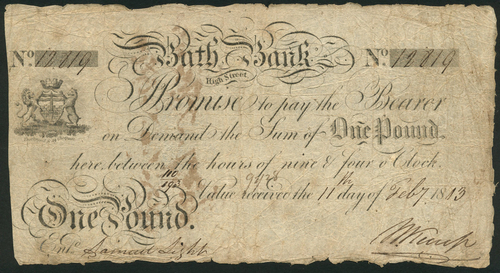 Bath Bank
High Street
No. 12819 No. 12819
I Promise to pay the Bearer
on Demand the Sum of One Pound.
here between the hours of nine & four o'Clock.
Value received the 11th day of Feby. 1813
One Pound.
Entd. Samuel Light